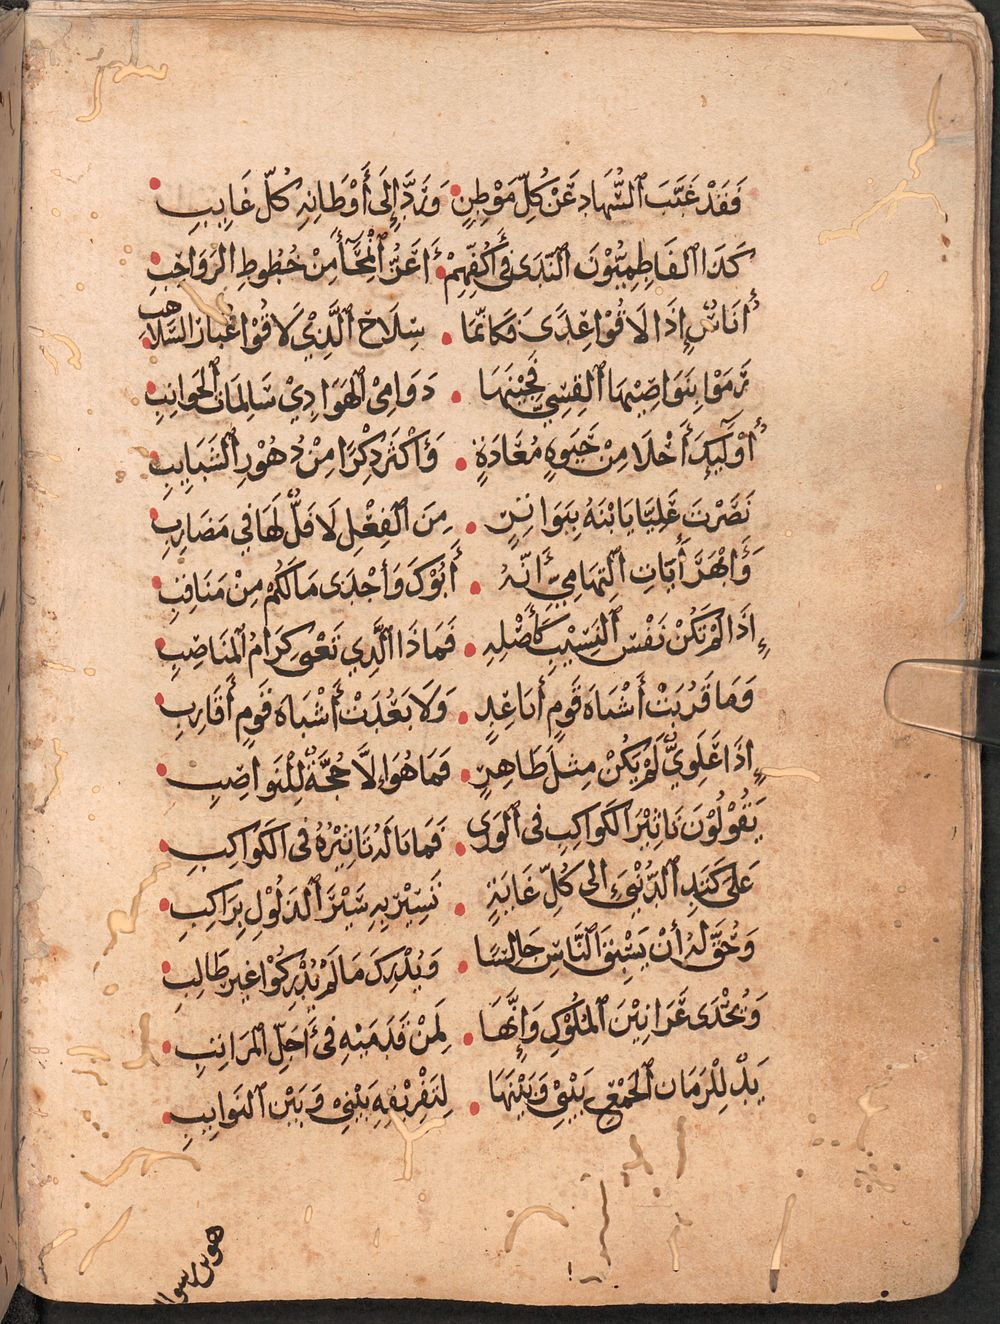 فَقَدْ غَيَّبَ الشُّهَّادَ عَنْ كُلِّ مَوْطِنٍ وَرَدَّ إِلَى أَوْطَانِهِ كُلَّ غَايِبِ
كَذَا الفَاطِمِيُّوْنَ النَّدَى فِي أَكُفِّهِمْ أَعَزُّ امِّحَاءً مِنْ خُطُوطِ الرَوَاجِبِ
أُنَاسٌ إِذَا لَاقُوا عِدًى فَكَانَّمَا سِلَاحُ الَّذِيْ لَاقُوْا غُبَارُ السَّلَاهِبِ
رَمَوْا بِنَوَاصِيْهَا القِسِيَّ فَجِئْنَهَا دَوَامِى الهَوَادِيْ سَالِمَاتِ الجَوَانِبِ
أُوْلَٓئِكَ أَحْلَا مِنْ حَيَوةٍ مُعَادَةٍ وَأَكْثَرُ ذِكْرًا مِنْ دُهُوْرِ الشَّبَايِبِ
نَصَرْتَ عَلِيًّا يَا ابْنَهُ بِبَوَاتِرٍ مِنَ الفِعْلِ لَا فَلٌّ لَهَا فِي مَضَارِبِ
وَأَبْهَرُ أَيَاتِ التِّهَامِيِّ أَنَّهُ أَبُوْكَ وَأَجْدَى مَا لَكُمْ مِنْ مَنَاقِبِ
إِذَا لَمْ تَكُنْ نَفْسُ النَسِيْبِ كَأَصْلِهِ فَمَاذَا الَّذِي تَغْنى كِرَامُ المَنَاصِبِ
وَمَا قَرُبَتْ أَشْبَاهُ قَومٍ أَبَاعِدٍ وَلَا بَعُدَتْ أَشْبَاهُ قَومٍ أَقَارِبِ
إِذَا عَلَوِيٌّ لَمْ يَكُنْ مِثْلَ طَاهِرٍ فَمَا هُوَ إِلَّا حُجَّةٌ لِلْنَوَاصِبِ
يَقُوْلُوْنَ تَاثِيْرُ الكَوَاكِبِ فى الوَرى فَمَا بَالُهُ تَاثِيْرُهُ فى الكَوَاكِبِ
عَلى كَتَدِ الدُّنْيَا إِلى كُلِّ غَايَةٍ تَسِيْرُ بِهِ سَيْرَ الذَلُوْلِ بِرَاكِبِ
وَحُقَّ لَهُ أَنْ يَسْبِقَ النَّاسَ جَالِسًا وَيُدْرِكَ مَا لَمْ يُدْرِكُوْا غَيرَ طَالِبِ
وَيُحْذَى عَرَانِيْنَ المُلُوْكِ وَإِنَّهَا لَمِنْ قَدَمَيْهِ فى أَجَلِّ المَرَاتِبِ
يَدٌ لِلْزَمَانِ الجَمْعُ بَيْنِيْ وَبَيْنَهَا لِتَفْرِيْقِهِ بَيْنِيْ وَبَيْنَ النَوَايِبِ
هو بن رسوا